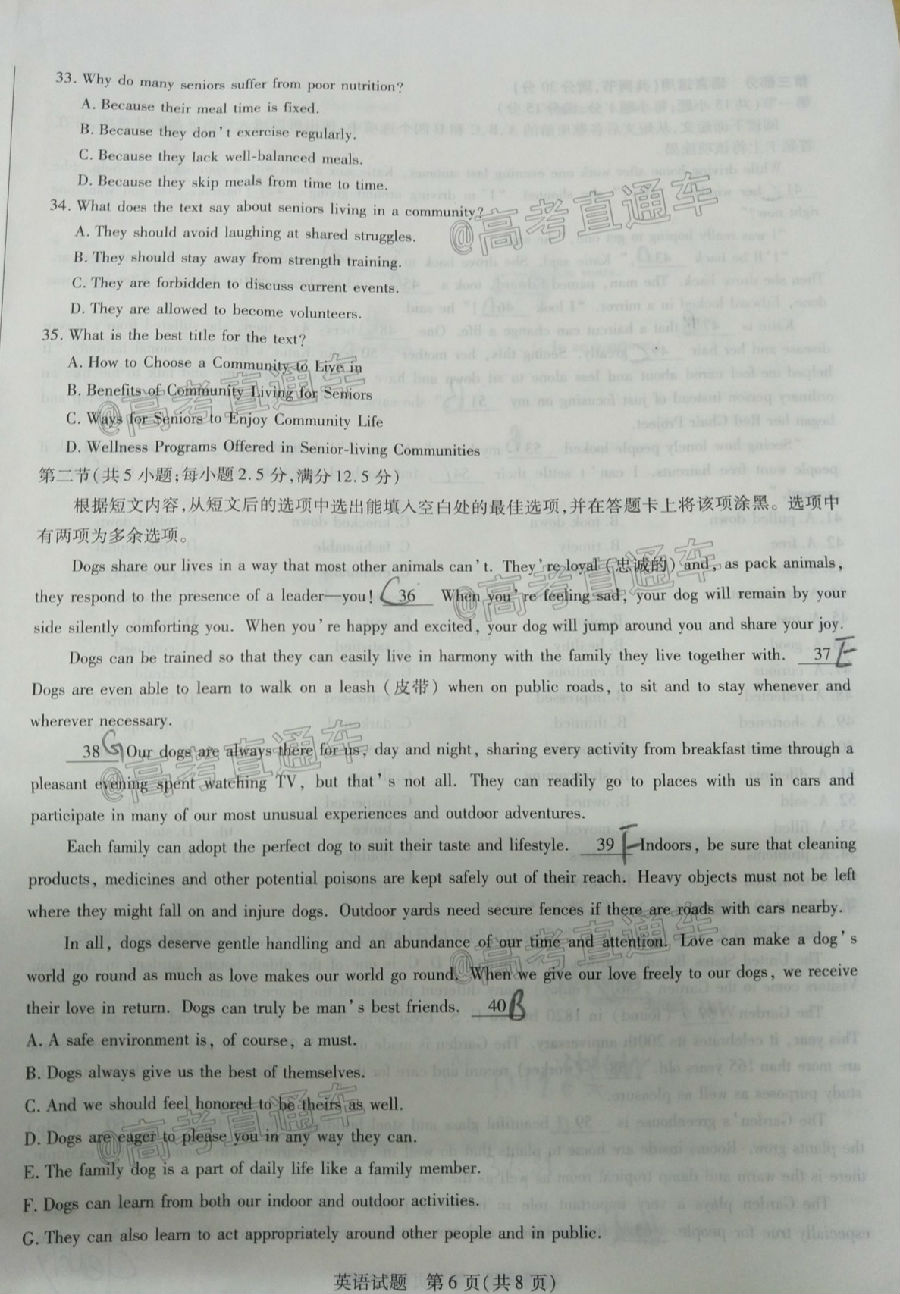 33. Why do many seniors suffer from poor nutrition?
A. Because their meal time is fixed.
B. Because they don't exercise regularly.
C. Because they lack well-balanced meals.
D. Because they skip meals from time to time.
34. What does the text say about seniors living in a community?
A. They should avoid laughing at shared struggles.
B. They should stay away from strength training.
C. They are forbidden to discuss current events.
D. They are allowed to become volunteers.
35. What is the best title for the text?
A. How to Choose a Community to Live in
B. Benefits of Community Living for Seniors
C. Ways for Seniors to Enjoy Community Life
D. Wellness Programs Offered in Senior-living Communities
第二节(共5小题;每小题2.5分,满分12.5分)
根据短文内容,从短文后的选项中选出能填入空白处的最佳选项,并在答题卡上将该项涂黑。选项中
有两项为多余选项。
Dogs share our lives in a way that most other animals can't. They're loyal (忠诚的) and, as pack animals,
they respond to the presence of a leader—you! C 36 When you're feeling sad, your dog will remain by your
side silently comforting you. When you're happy and excited, your dog will jump around you and share your joy.
Dogs can be trained so that they can easily live in harmony with the family they live together with. 37 E
Dogs are even able to learn to walk on a leash (皮带) when on public roads, to sit and to stay whenever and
wherever necessary.
38 G Our dogs are always there for us, day and night, sharing every activity from breakfast time through a
pleasant evening spent watching TV, but that's not all. They can readily go to places with us in cars and
participate in many of our most unusual experiences and outdoor adventures.
Each family can adopt the perfect dog to suit their taste and lifestyle. 39 F Indoors, be sure that cleaning
products, medicines and other potential poisons are kept safely out of their reach. Heavy objects must not be left
where they might fall on and injure dogs. Outdoor yards need secure fences if there are roads with cars nearby.
In all, dogs deserve gentle handling and an abundance of our time and attention. Love can make a dog's
world go round as much as love makes our world go round. When we give our love freely to our dogs, we receive
their love in return. Dogs can truly be man's best friends. 40 B
A. A safe environment is, of course, a must.
B. Dogs always give us the best of themselves.
C. And we should feel honored to be theirs as well.
D. Dogs are eager to please you in any way they can.
E. The family dog is a part of daily life like a family member.
F. Dogs can learn from both our indoor and outdoor activities.
G. They can also learn to act appropriately around other people and in public.
英语试题 第6页(共8页)
@高考直通车
@高考直通车
@高考直通车
@高考直通车
@高考直通车
@高考直通车